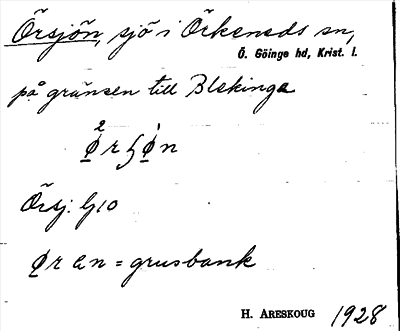 Örsjön, sjö i Örkeneds sn,
Ö. Göinge hd, Krist. l.
på gränsen till Blekinge
Örsj. G10
ør en = grusbank
H. ARESKOUG 1928